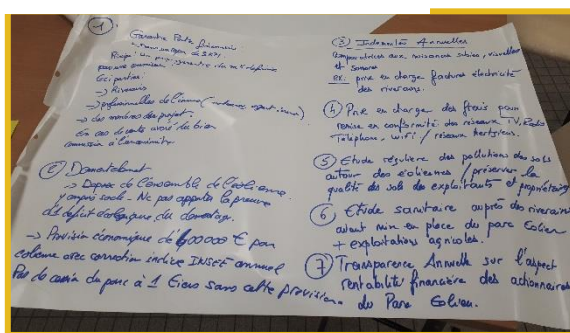 1.
Garantie Perte financière
Riverains par
Co partie:
-> Riverains
-> professionnelles de l'immo (notaires, expert immo)
-> des membres du projet.
En cas de vente avérée du bien
② Démantèlement
-> Dépose de l'ensemble de l'éolienne
y compris socle. Ne pas apporter la preuve
de déficit écologique du démontage.
-> Provision économique de 400 000 € par
éolienne avec correction indice INSEE annuel
Pas de cession du parc à 1 tiers sans cette provision.
③ Indemnités Annuelles
compensatrices aux nuisances subies, visuelles
et sonores
ex: prise en charge facture électricité
des riverains.
④ Prise en charge des frais pour
remise en conformité des réseaux TV, Radio
Téléphone, wifi / réseaux hertziens.
⑤ Etude régulière des pollutions des sols
autour des éoliennes / préserver la
qualité des sols des exploitants et propriétaires
⑥ Etude sanitaire auprès des riverains
avant mise en place du parc Eolien
+ exploitations agricoles.
⑦ Transparence Annuelle sur l'aspect
rentabilité financière des actionnaires
du Parc Eolien.